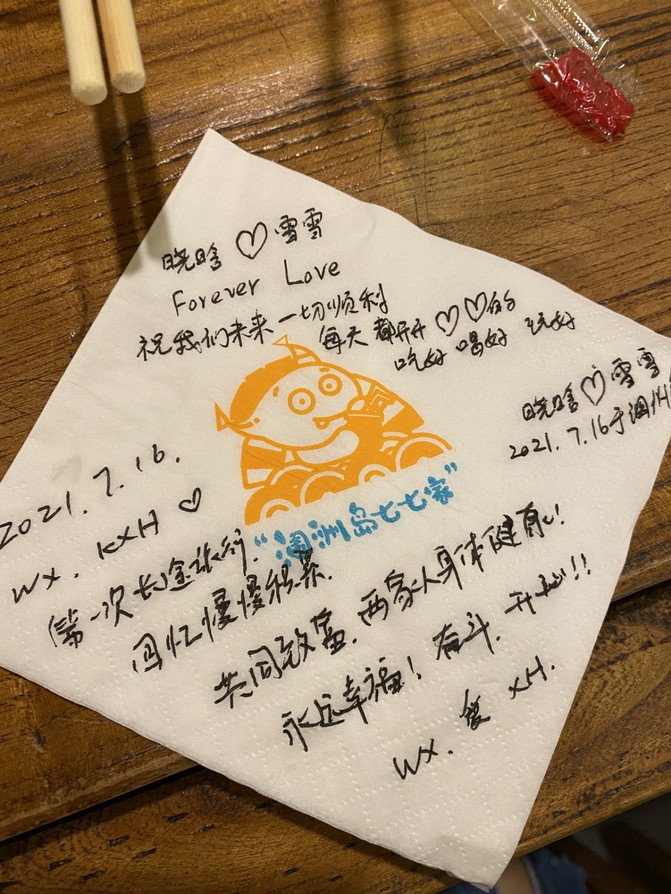 晓晗♡雪雪
Forever Love
祝我们未来一切顺利
每天都开开♡♡的
吃好 喝好 玩好
晓晗♡雪雪
2021.7.16于涠洲
2021.7.16.
WX. KXH ♡
第一次长途旅行.
回忆慢慢积累.
共同致富.两家人身体健康!
永远幸福! 奋斗. 开心!!
WX. 爱 XH.
“涠洲岛七七家”